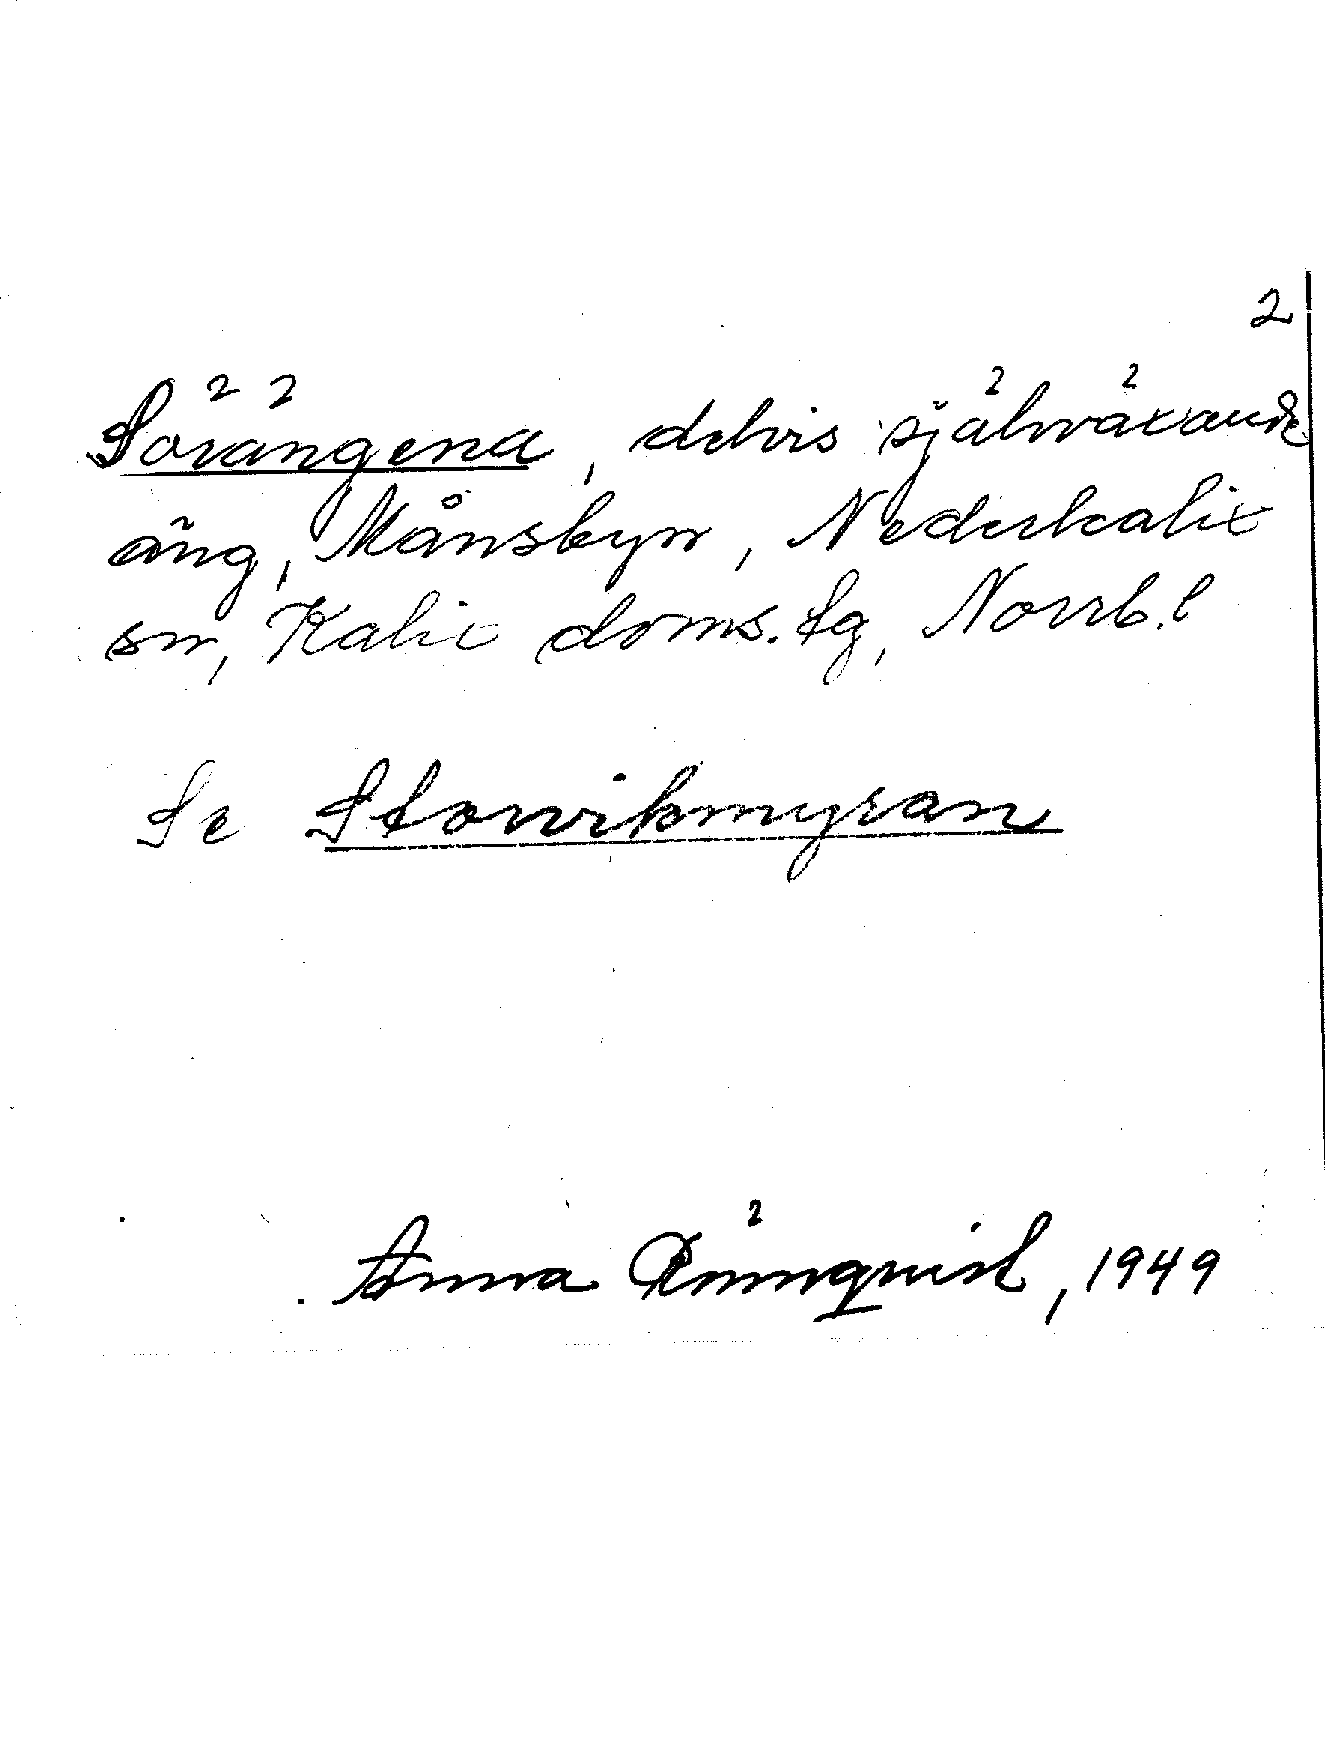 2
Sörängena, delvis självväxande
äng, Månsbyn, Nederkalix
sn, Kalix doms. lg, Norrb. l
Se Storvikmyran
Anna Rönnquist, 1949